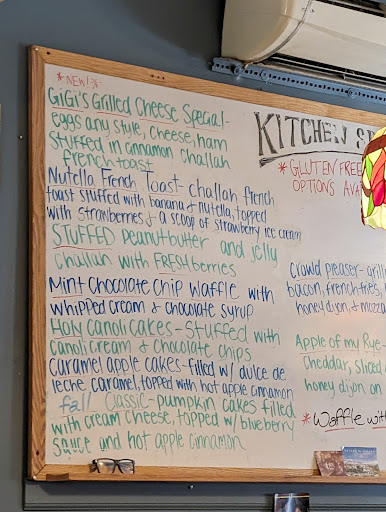 *NEW!*
GiGi's Grilled Cheese Special-
eggs any style, cheese, ham
stuffed in cinnamon challah
french toast
Nutella French Toast- challah french
toast stuffed with banana & nutella, topped
with strawberries & a scoop of strawberry ice cream
STUFFED peanut butter and jelly
challah with FRESH berries
Mint chocolate chip waffle with
whipped cream & chocolate syrup
Holy canoli cakes- stuffed with
canoli cream & chocolate chips
caramel apple cakes- filled w/ dulce de
leche caramel, topped with hot apple cinnamon
fall classic- pumpkin cakes filled
with cream cheese, topped w/ blueberry
sauce and hot apple cinnamon
KITCHEN
*GLUTEN FREE
OPTIONS
Crowd pleaser-
bacon, french fries,
honey dijon, &
Apple of my Rye-
cheddar, sliced
honey dijon on
*Waffle